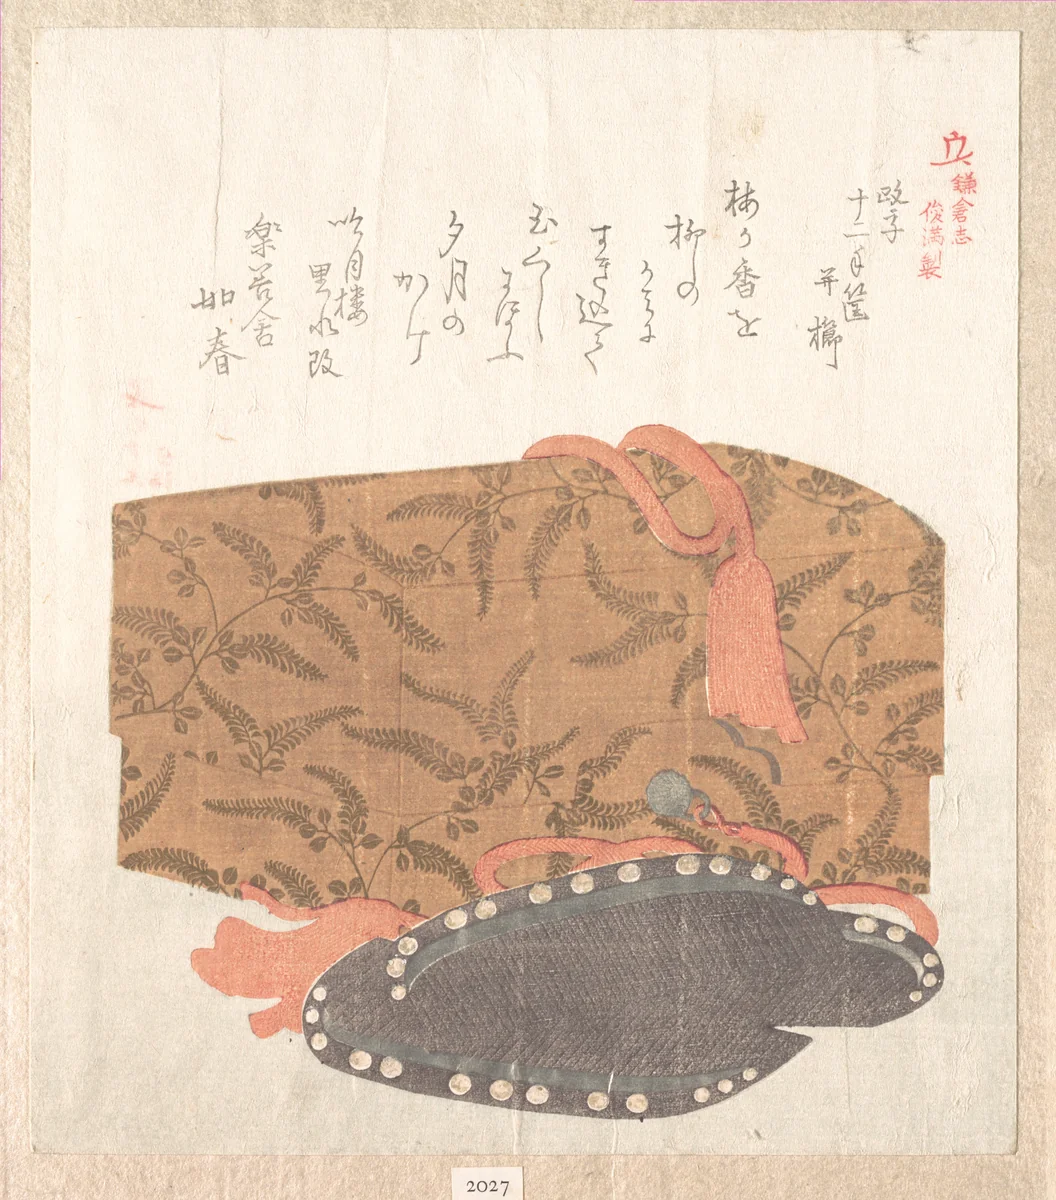 鎌倉志
俊満製
政子
十二手筥
并櫛
梅か香を
柳の
かみに
すき込て
玉くし
にほふ
夕月の
かけ
吟月楼
里水改
楽善舎
如春
2027